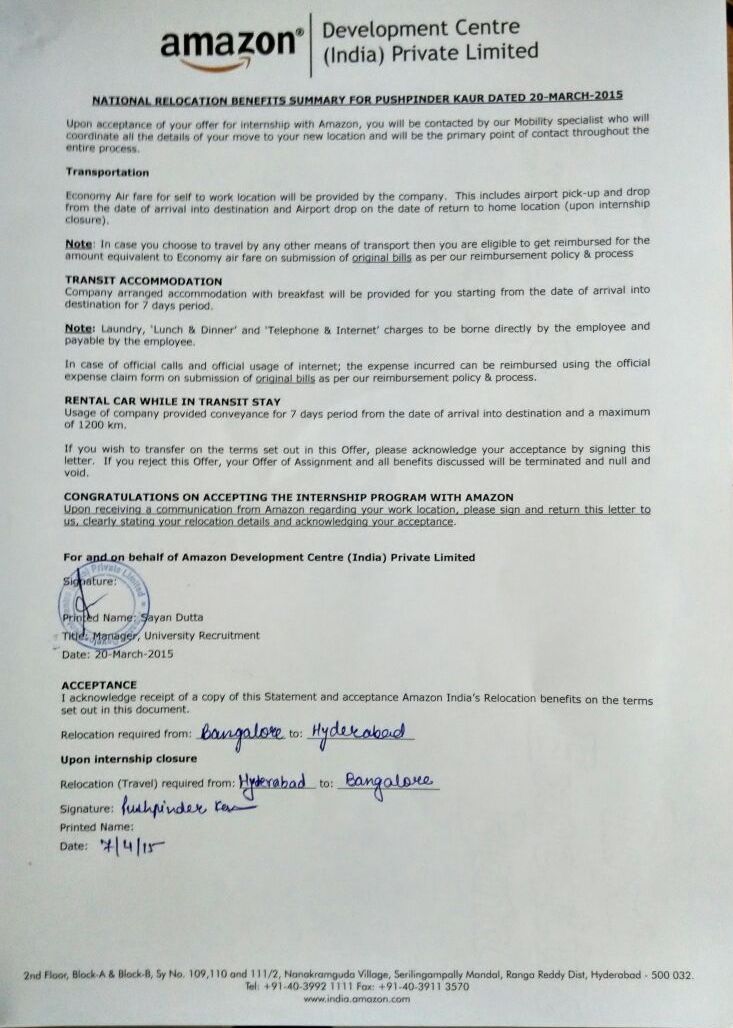 amazon® Development Centre
(India) Private Limited
NATIONAL RELOCATION BENEFITS SUMMARY FOR PUSHPINDER KAUR DATED 20-MARCH-2015
Upon acceptance of your offer for internship with Amazon, you will be contacted by our Mobility specialist who will
coordinate all the details of your move to your new location and will be the primary point of contact throughout the
entire process.
Transportation
Economy Air fare for self to work location will be provided by the company. This includes airport pick-up and drop
from the date of arrival into destination and Airport drop on the date of return to home location (upon internship
closure).
Note: In case you choose to travel by any other means of transport then you are eligible to get reimbursed for the
amount equivalent to Economy air fare on submission of original bills as per our reimbursement policy & process
TRANSIT ACCOMMODATION
Company arranged accommodation with breakfast will be provided for you starting from the date of arrival into
destination for 7 days period.
Note: Laundry, 'Lunch & Dinner' and 'Telephone & Internet' charges to be borne directly by the employee and
payable by the employee.
In case of official calls and official usage of internet; the expense incurred can be reimbursed using the official
expense claim form on submission of original bills as per our reimbursement policy & process.
RENTAL CAR WHILE IN TRANSIT STAY
Usage of company provided conveyance for 7 days period from the date of arrival into destination and a maximum
of 1200 km.
If you wish to transfer on the terms set out in this Offer, please acknowledge your acceptance by signing this
letter. If you reject this Offer, your Offer of Assignment and all benefits discussed will be terminated and null and
void.
CONGRATULATIONS ON ACCEPTING THE INTERNSHIP PROGRAM WITH AMAZON
Upon receiving a communication from Amazon regarding your work location, please sign and return this letter to
us, clearly stating your relocation details and acknowledging your acceptance.
For and on behalf of Amazon Development Centre (India) Private Limited
Signature:
Private Limited
Printed Name: Sayan Dutta
Title: Manager, University Recruitment
Date: 20-March-2015
ACCEPTANCE
I acknowledge receipt of a copy of this Statement and acceptance Amazon India's Relocation benefits on the terms
set out in this document.
Relocation required from: Bangalore to: Hyderabad
Upon internship closure
Relocation (Travel) required from: Hyderabad to: Bangalore
Signature: Pushpinder Kaur
Printed Name:
Date: 7/4/15
2nd Floor, Block-A & Block-B, Sy No. 109,110 and 111/2, Nanakramguda Village, Serilingampally Mandal, Ranga Reddy Dist, Hyderabad - 500 032.
Tel: +91-40-3992 1111 Fax: +91-40-3911 3570
www.india.amazon.com